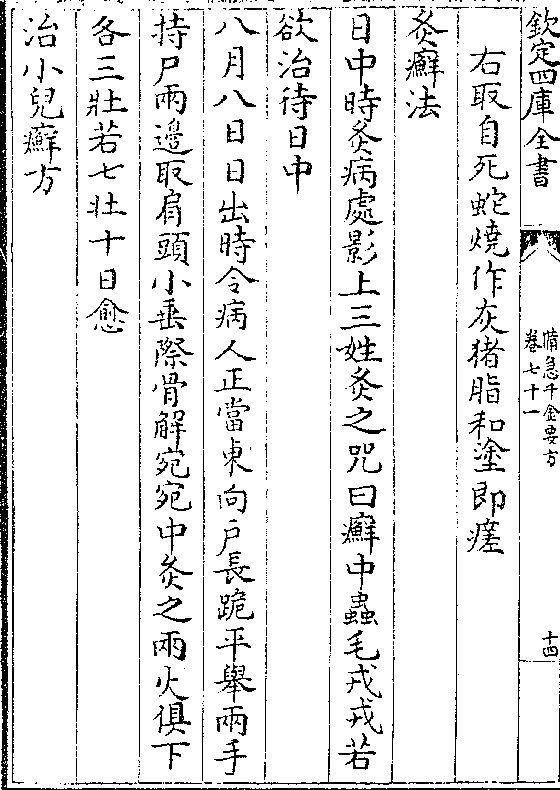 欽定四庫全書
備急千金要方
卷七十一
十四
右取自死蛇燒作灰猪脂和塗即瘥
灸癬法
日中時灸病處影上三姓灸之咒曰癬中蟲毛戎戎若
欲治待日中
八月八日日出時令病人正當東向戶長跪平舉兩手
持尸兩邉取肩頭小垂際骨解宛宛中灸之兩火俱下
各三壯若七壯十日愈
治小兒癬方